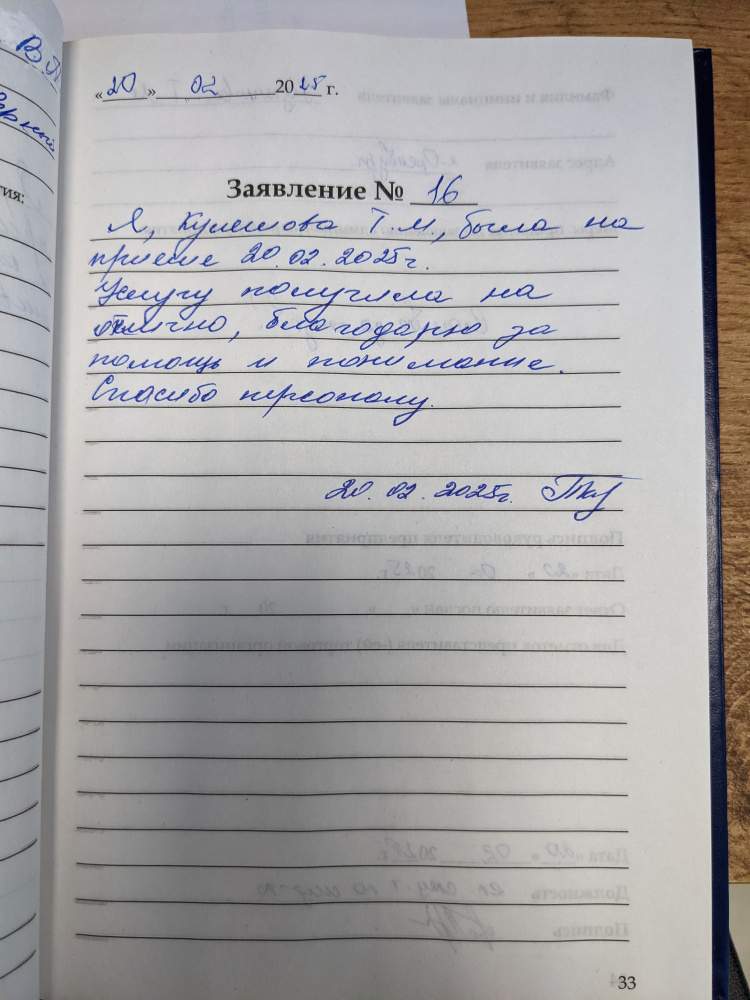 В.П
«20» 02 2025 г.
Заявление № 16
Я, Кулешова Т.М., была на
приеме 20.02.2025г.
Услугу получила на
отлично, благодарю за
помощь и понимание.
Спасибо персоналу.
20.02.2025г.
33